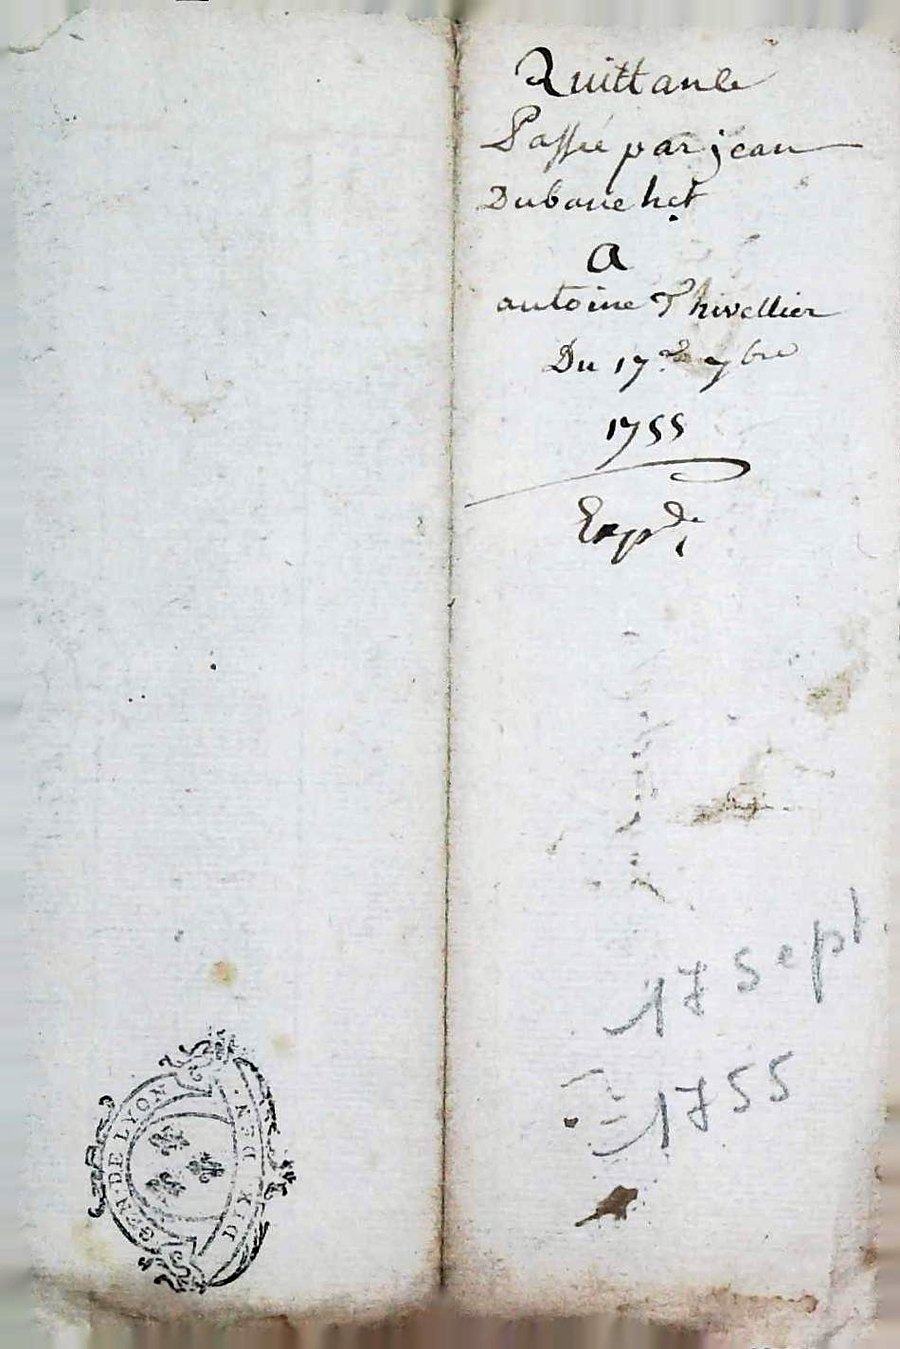 Quittance
Passée par jean
Dubouchet
A
antoine Thivellier
Du 17.e 7bre
1755
Expd.
17 Sept
1755
GEN. DE LYON
DIX DEN.